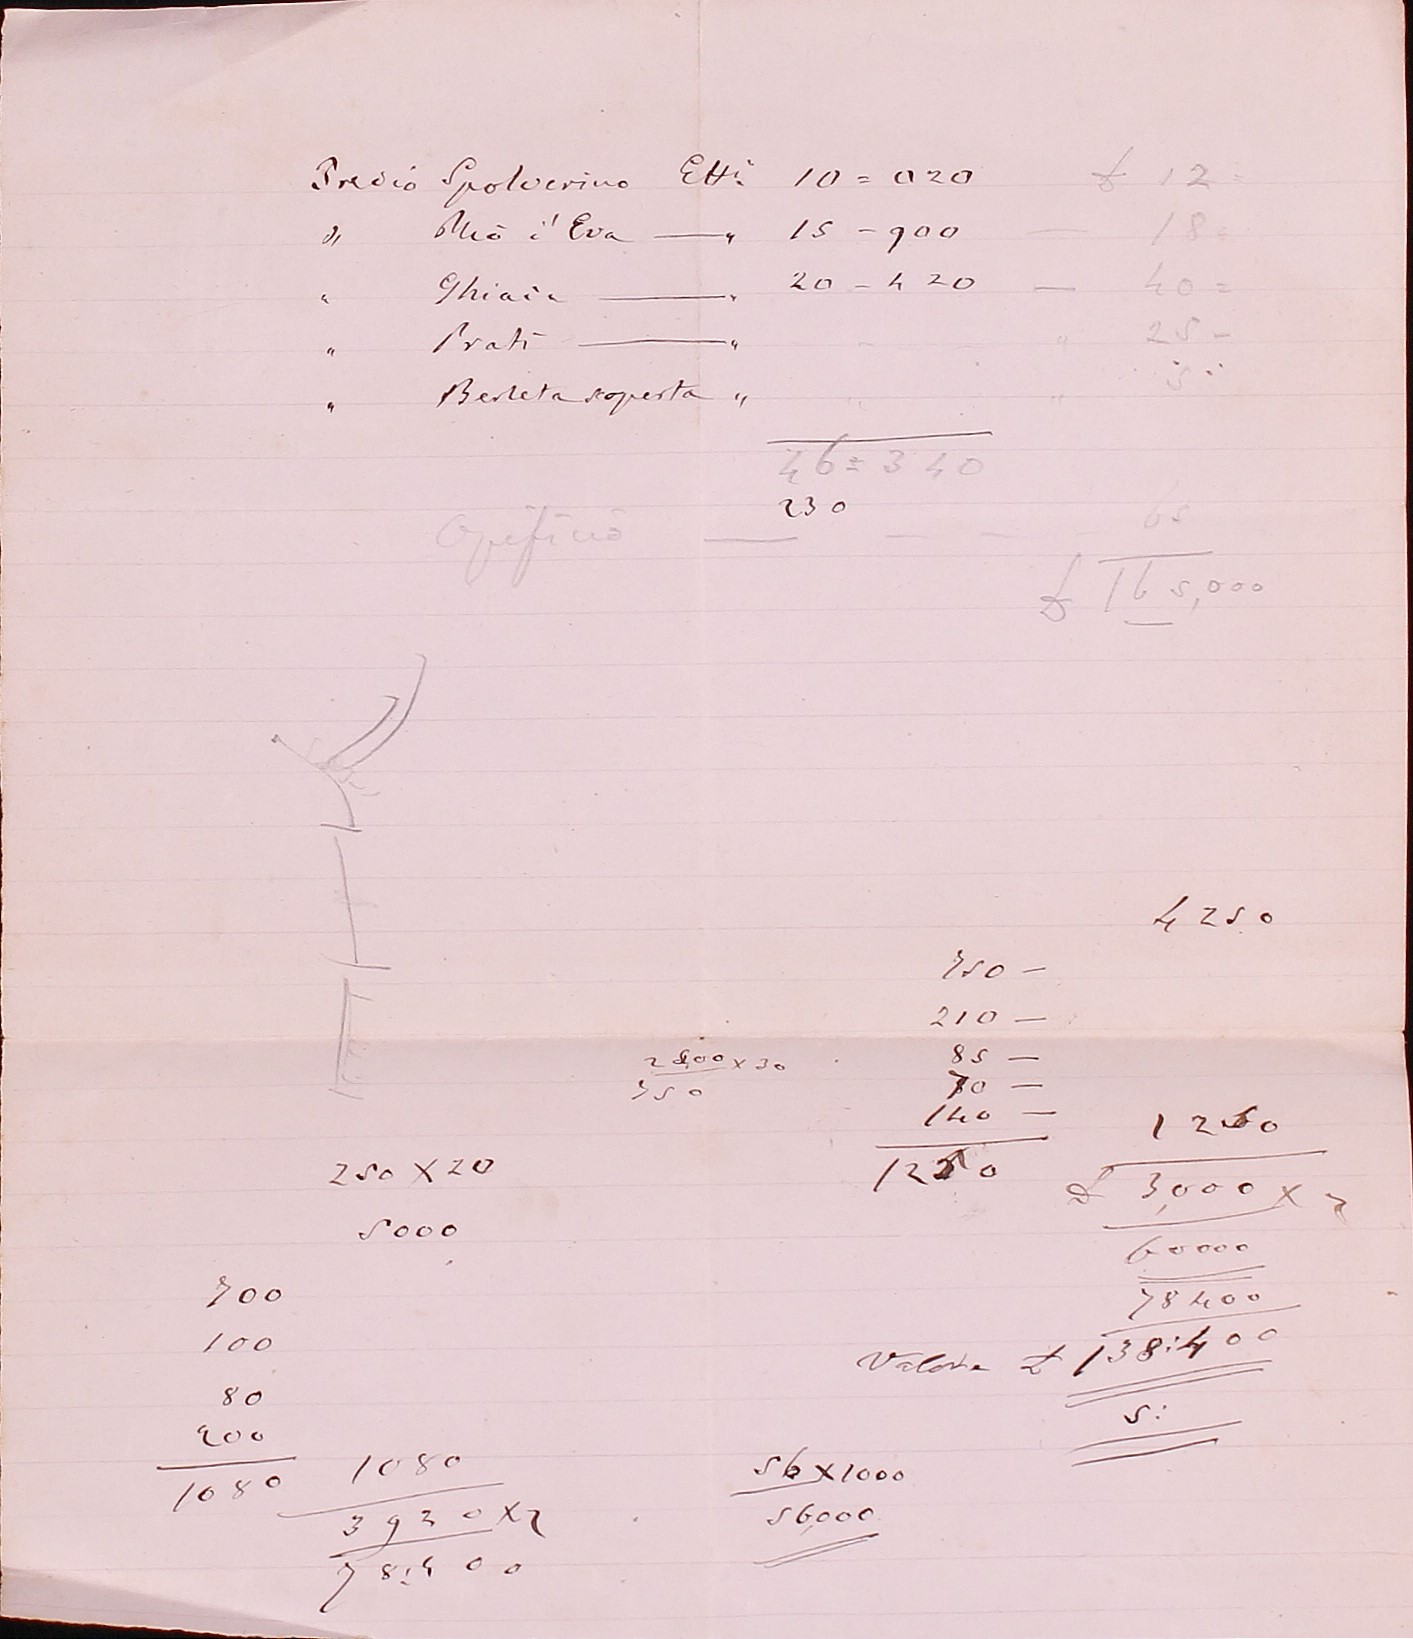 Predio Spolverino Etti 10 = 020 £ 12 =
" Rhò i' Eva — " 15 - 900 — 18 =
" Ghiaia — " 20 - 420 — 40 =
" Prati — " " 25 -
" scoperta " " 5
46 = 340
230
Opificio — — — 65
£ 165,000
4250
750 —
210 —
2500 x 30 85 —
750 70 —
140 — 1250
250 x 20 1250 £ 3,000 x 2
5000 60000
700 78400
100 Valore £ 138:400
80 5:
200
1080 1080 56 x 1000
3920 x 2 56,000
78:400